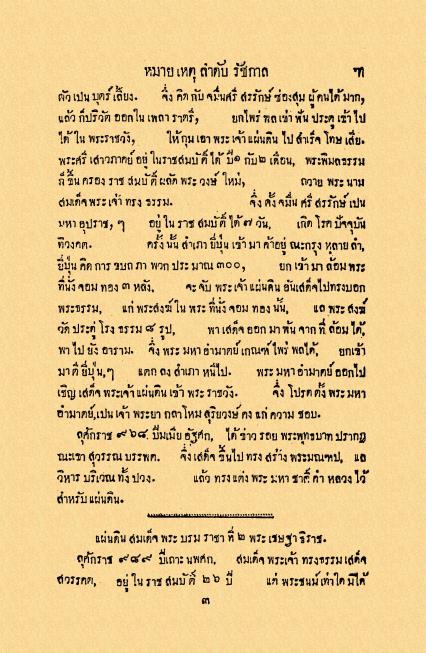 หมาย เหตุ ลำดับ รัชกาล ๓
ตัว เปน บุตร์ เลี้ยง. จึ่ง คิด กับ จมื่นศรี สรรักษ์ ซ่องสุม ผู้ คนได้ มาก,
แล้ว ก็ ปริวัต ออก ใน เพลา ราตรี, ยกไพร่ พล เข้า ฟัน ประตู เข้า ไป
ได้ ใน พระราชวัง, ให้ กุม เอา พระ เจ้า แผ่นดิน ไป สำเร็จ โทษ เสีย.
พระศรี เสาวภาคย์ อยู่ ในราชสมบัติ ได้ ปี ๑ กับ ๒ เดือน, พระพิมลธรรม
ก็ ขึ้น ครอง ราช สมบัติ ผลัด พระ วงษ์ ใหม่, ถวาย พระ นาม
สมเด็จ พระ เจ้า ทรง ธรรม. จึ่ง ตั้ง จมื่น ศรี สรรักษ์ เปน
มหา อุปราช, ๆ อยู่ ใน ราช สมบัติ ได้ ๗ วัน, เกิด โรค ปัจจุบัน
ทิวงคต. ครั้ง นั้น สำเภา ยี่ปุ่น เข้า มา ค้าอยู่ ณะกรุง หลาย ลำ,
ยี่ปุ่น คิด การ ขบถ ภา พวก ประ มาณ ๓๐๐, ยก เข้า มา ล้อม พระ
ที่นั่ง จอม ทอง ๓ หลัง, จะ จับ พระ เจ้า แผ่นดิน อันเสด็จ ไปทรงบอก
พระธรรม, แก่ พระสงฆ์ ใน พระ ที่นั่ง จอม ทอง นั้น, แล พระ สงฆ์
วัด ประตู่ โรง ธรรม ๘ รูป, พา เสด็จ ออก มา พ้น จาก ที่ ล้อม ได้,
พา ไป ยัง อาราม. จึ่ง พระ มหา อำมาตย์ เกณฑ์ ไพร่ พลได้, ยกเข้า
มา ตี ยี่ปุ่น, ๆ แตก ลง สำเภา หนีไป. พระ มหา อำมาตย์ ออกไป
เชิญ เสด็จ พระเจ้า แผ่นดิน เข้า พระ ราชวัง. จึ่ง โปรด ตั้ง พระ มหา
อำมาตย์, เปน เจ้า พระยา กลาโหม สุริยวงษ์ คง แก่ ความ ชอบ.
ลุศักราช ๙๖๘. ปีมเมีย อัฐศก, ได้ ข่าว รอย พระพุทธบาท ปรากฏ
ณะเขา สุวรรณ บรรพต. จึ่ง เสด็จ ขึ้นไป ทรง สร้าง พระมณฑป, แล
วิหาร บริเวณ ทั้ง ปวง. แล้ว ทรง แต่ง พระ มหา ชาติ์ คำ หลวง ไว้
สำหรับ แผ่นดิน.
แผ่นดิน สมเด็จ พระ บรม ราชา ที่ ๒ พระ เชษฐา ธิราช.
ลุศักราช ๙๘๙ ปีเถาะ นพศก. สมเด็จ พระเจ้า ทรงธรรม เสด็จ
สวรรคต, อยู่ ใน ราช สมบัติ์ ๒๖ ปี แต่ พระชนม์ เท่าใด มิได้
๓